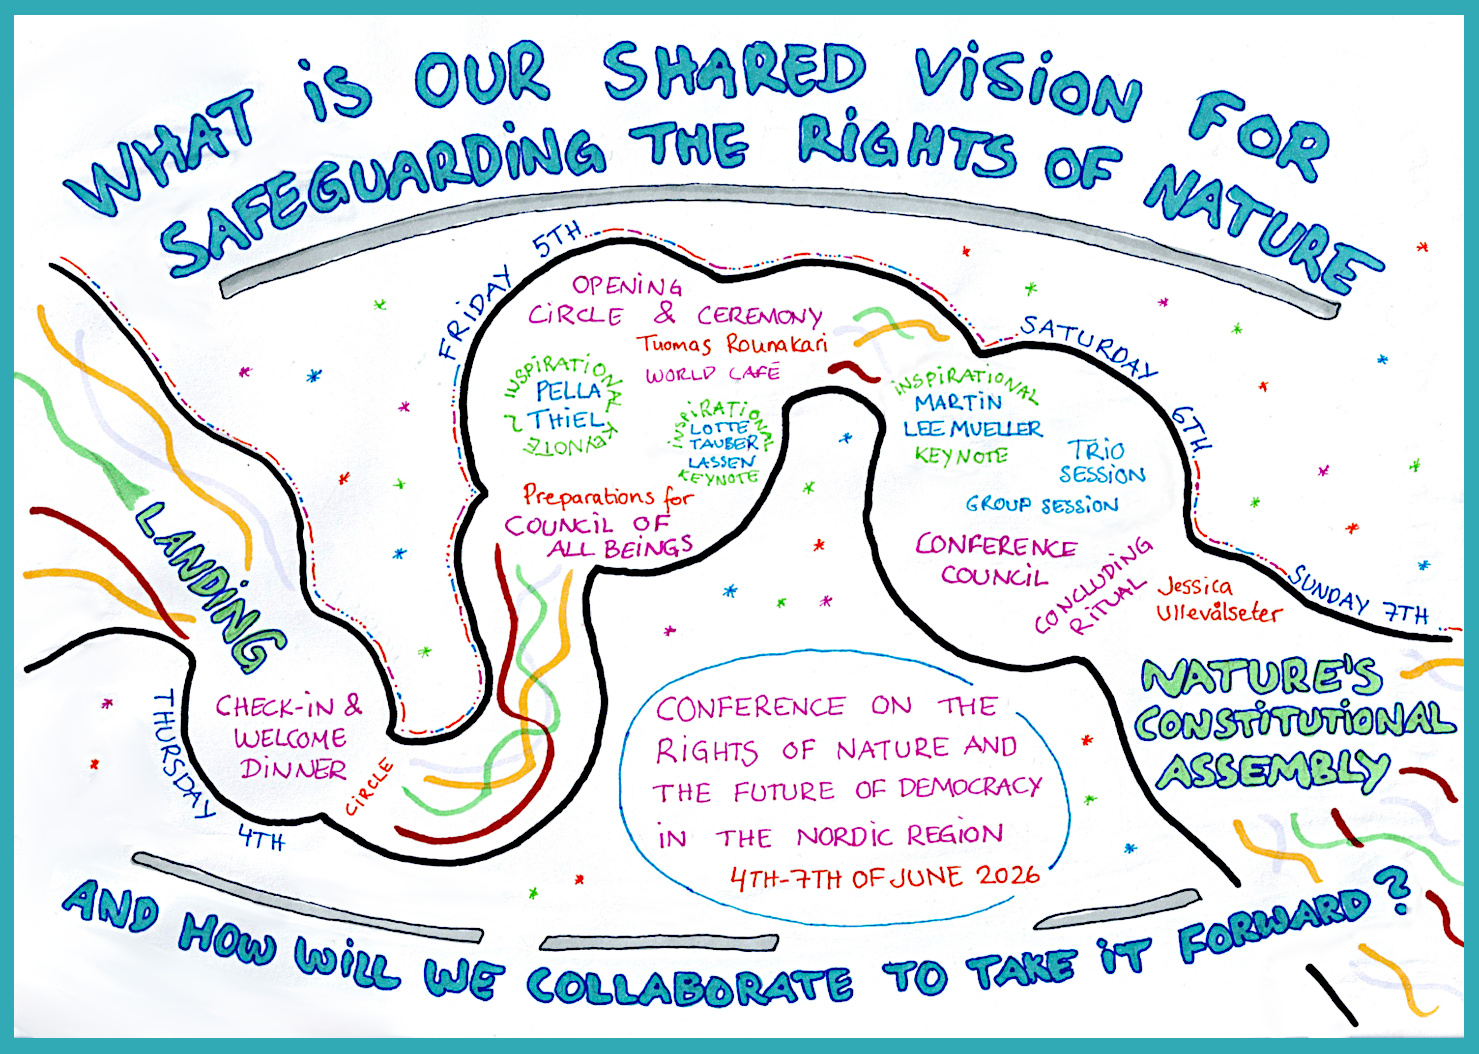 WHAT iS OUR SHARED ViSiON FOR
SAFEGUARDiNG THE RiGHTS OF NATURE
LANDiNG
THURSDAY 4TH
CHECK-iN &
WELCOME
DiNNER
CiRCLE
FRiDAY 5TH
OPENiNG
CiRCLE & CEREMONY
Tuomas Rounakari
WORLD CAFÉ
iNSPiRATiONAL
PELLA
THiEL
KEYNOTE
iNSPiRATiONAL
LOTTE
TAUBER
LASSEN
KEYNOTE
Preparations for
COUNCiL OF
ALL BEiNGS
SATURDAY 6TH
iNSPiRATiONAL
MARTiN
LEE MUELLER
KEYNOTE
TRiO
SESSiON
GROUP SESSiON
CONFERENCE
COUNCiL
CONCLUDiNG
RiTUAL
Jessica
Ullevålseter
SUNDAY 7TH
NATURE'S
CONSTiTUTiONAL
ASSEMBLY
CONFERENCE ON THE
RiGHTS OF NATURE AND
THE FUTURE OF DEMOCRACY
iN THE NORDiC REGiON
4TH-7TH OF JUNE 2026
AND HOW WiLL WE COLLABORATE TO TAKE iT FORWARD?